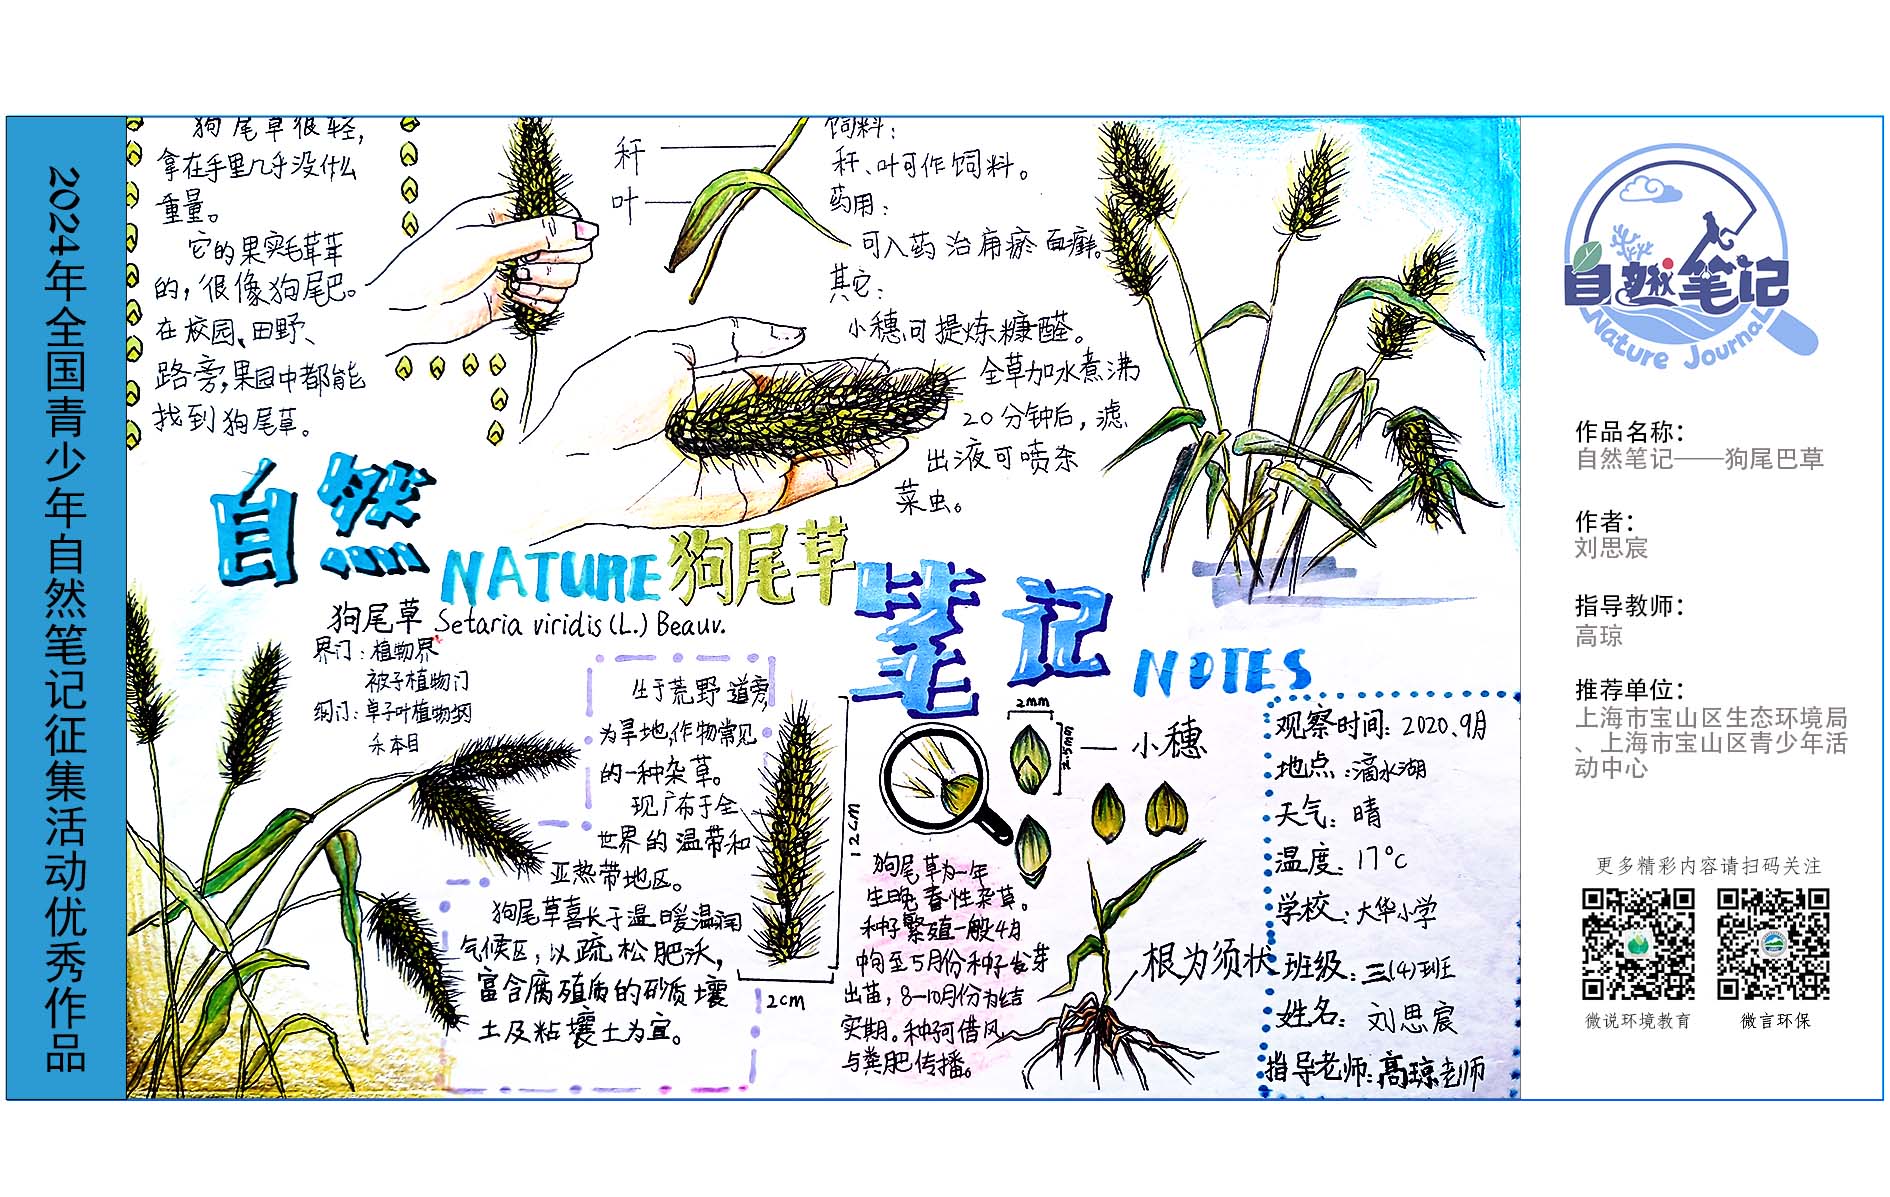 2024年全国青少年自然笔记征集活动优秀作品
狗尾草很轻，
拿在手里几乎没什么
重量。
它的果实毛茸茸
的，很像狗尾巴。
在校园、田野、
路旁，果园中都能
找到狗尾草。
秆
叶
饲料：
秆、叶可作饲料。
药用：
可入药 治痈瘀 面癣。
其它：
小穗可提炼糠醛。
全草加水煮沸
20分钟后，滤
出液可喷杀
菜虫。
自然
NATURE 狗尾草
笔记
NOTES
狗尾草 Setaria viridis (L.) Beauv.
界门：植物界
被子植物门
纲门：单子叶植物纲
禾本目
生于荒野道旁，
为旱地作物常见
的一种杂草。
现广布于全
世界的温带和
亚热带地区。
狗尾草喜长于温暖温润
气候区，以疏松肥沃，
富含腐殖质的砂质壤
土及粘壤土为宜。
12cm
2cm
2mm
小穗
狗尾草为一年
生晚春性杂草。
种子繁殖一般4月
中旬至5月份种子发芽
出苗，8-10月份为结
实期。种子可借风
与粪肥传播。
根为须状
观察时间：2020.9月
地点：滴水湖
天气：晴
温度：17℃
学校：大华小学
班级：三(4)班
姓名：刘思宸
指导老师：高琼老师
自然笔记
Nature Journal
作品名称：
自然笔记——狗尾巴草
作者：
刘思宸
指导教师：
高琼
推荐单位：
上海市宝山区生态环境局
、上海市宝山区青少年活
动中心
更多精彩内容请扫码关注
微说环境教育
微言环保